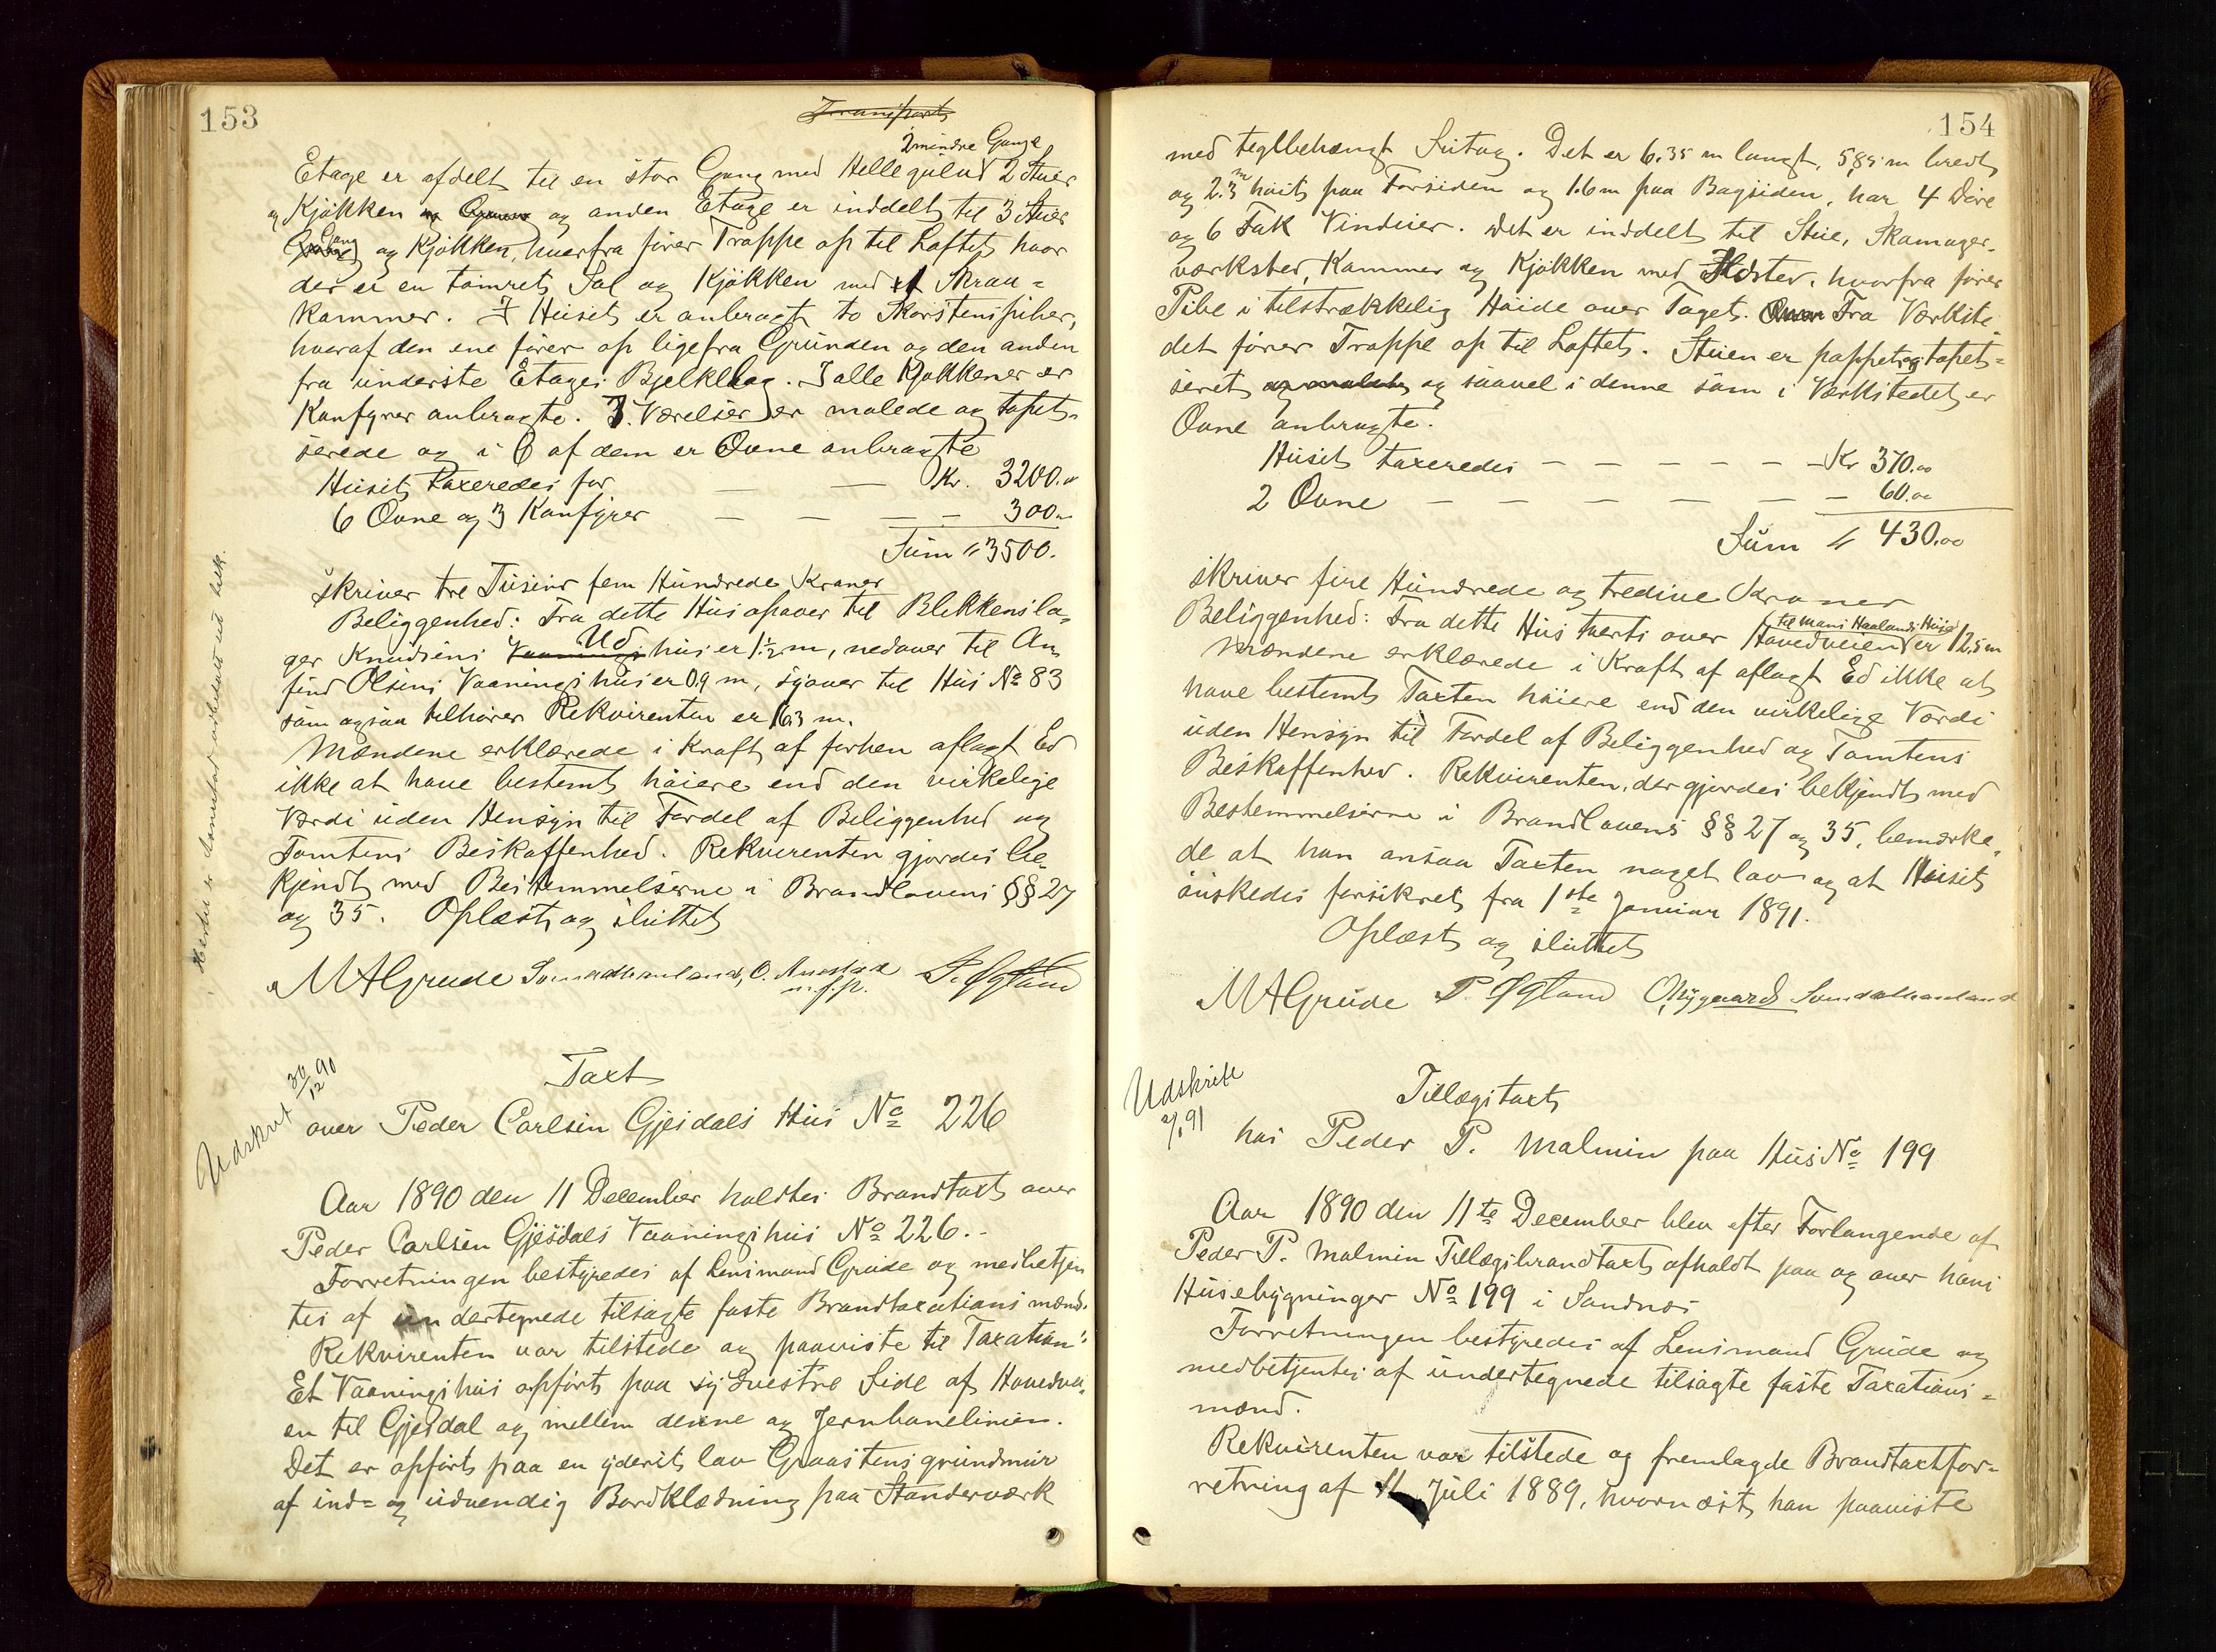 153
Transport
2 mindre Gange
Etage er afdelt til en stor Gang med Hellegulv 2 Stuer
og Kjøkken og anden Etage er inddelt til 3 Stuer
Gang og Kjøkken, hvorfra fører Trappe op til Loftet hvor
der er en tømret Sal og Kjøkken med 1 Skraa-
kammer. I Huset er anbragt to Skorstenspiber,
hvoraf den ene fører op lige fra Grunden og den anden
fra underste Etages Bjelkelag. I alle Kjøkkener er
Komfyrer anbragte. 7 Værelser er malede og tapet-
serede og i 6 af dem er Ovne anbragte
Huset taxeredes for — — Kr. 3200.00
6 Ovne og 3 Komfyrer — — — — 300.00
Sum " 3500.
skriver tre Tusind fem Hundrede Kroner
Beliggenhed: Fra dette Hus opover til Blikkensla-
ger Knudsens Udhus er 1½ m, nedover til An-
find Olsens Vaaningshus er 0.9 m, syover til Hus No 83
som ogsaa tilhører Rekvirenten er 16.3 m.
Mændene erklærede i Kraft af forhen aflagt Ed
ikke at have bestemt høiere end den virkelige
Værdi uden Hensyn til Fordel af Beliggenhed og
Tomtens Beskaffenhed. Rekvirenten gjordes be-
kjendt med Bestemmelserne i Brandlovens §§ 27
og 35. Oplæst og sluttet
MAGrude O. m.f.p. P. Øgland
Udskrevet 30/12 90
Taxt
over Peder Carlsen Gjesdals Hus No 226
Aar 1890 den 11 December holdtes Brandtaxt over
Peder Carlsen Gjesdals Vaaningshus No 226.-
Forretningen bestyredes af Lensmand Grude og medbetjen
tes af undertegnede tilsagte faste Brandtaxationsmænd.
Rekvirenten var tilstede og paaviste til Taxation:
Et Vaaningshus opført paa sydvestre Side af Hovedvei-
en til Gjesdal og mellem denne og Jernbanelinien.
Det er opført paa en yderst lav Graastensgrundmur
af ind= og udvendig Bordklædning paa Standerværk
154
med teglbehængt Sutag. Det er 6.35 m langt, 5,85 m bredt
og 2.3 m høit paa Forsiden og 1.6 m paa Bagsiden, har 4 Døre
og 6 Fak Vinduer. Det er inddelt til Stue, Skomager-
værksted, Kammer og Kjøkken med Ildsted, hvorfra fører
Pibe i tilstrækkelig Høide over Taget. Fra Værkste-
det fører Trappe op til Loftet. Stuen er pappet og tapet-
seret og saavel i denne som i Værkstedet er
Ovne anbragte.
Huset taxeredes — — — — — — Kr 370.00
2 Ovne — — — — — — 60.00
Sum " 430.00
skriver fire Hundrede og tredive Kroner
Beliggenhed: Fra dette Hus tverts over Hovedveien til Mons Haalands Hus er 12,5 m
Mændene erklærede i Kraft af aflagt Ed ikke at
have bestemt Taxten høiere end den virkelige Værdi
uden Hensyn til Fordel af Beliggenhed og Tomtens
Beskaffenhed. Rekvirenten, der gjordes bekjendt med
Bestemmelserne i Brandlovens §§ 27 og 35, bemærke-
de at han ansaa Taxten noget lav og at Huset
ønskedes forsikret fra 1ste Januar 1891.
Oplæst og sluttet
MAGrude P. Øgland O Nygaard
Udskrift
2/1 91
Tillægstaxt
hos Peder P. Malmin paa Hus No 199
Aar 1890 den 11te December blev efter Forlangende af
Peder P. Malmin Tillægsbrandtaxt afholdt paa og over hans
Husebygninger No 199 i Sandnes
Forretningen bestyredes af Lensmand Grude og
medbetjentes af undertegnede tilsagte faste Taxations=
mænd.
Rekvirenten var tilstede og fremlagde Brandtaxtfor-
retning af 11 Juli 1889, hvornæst han paaviste